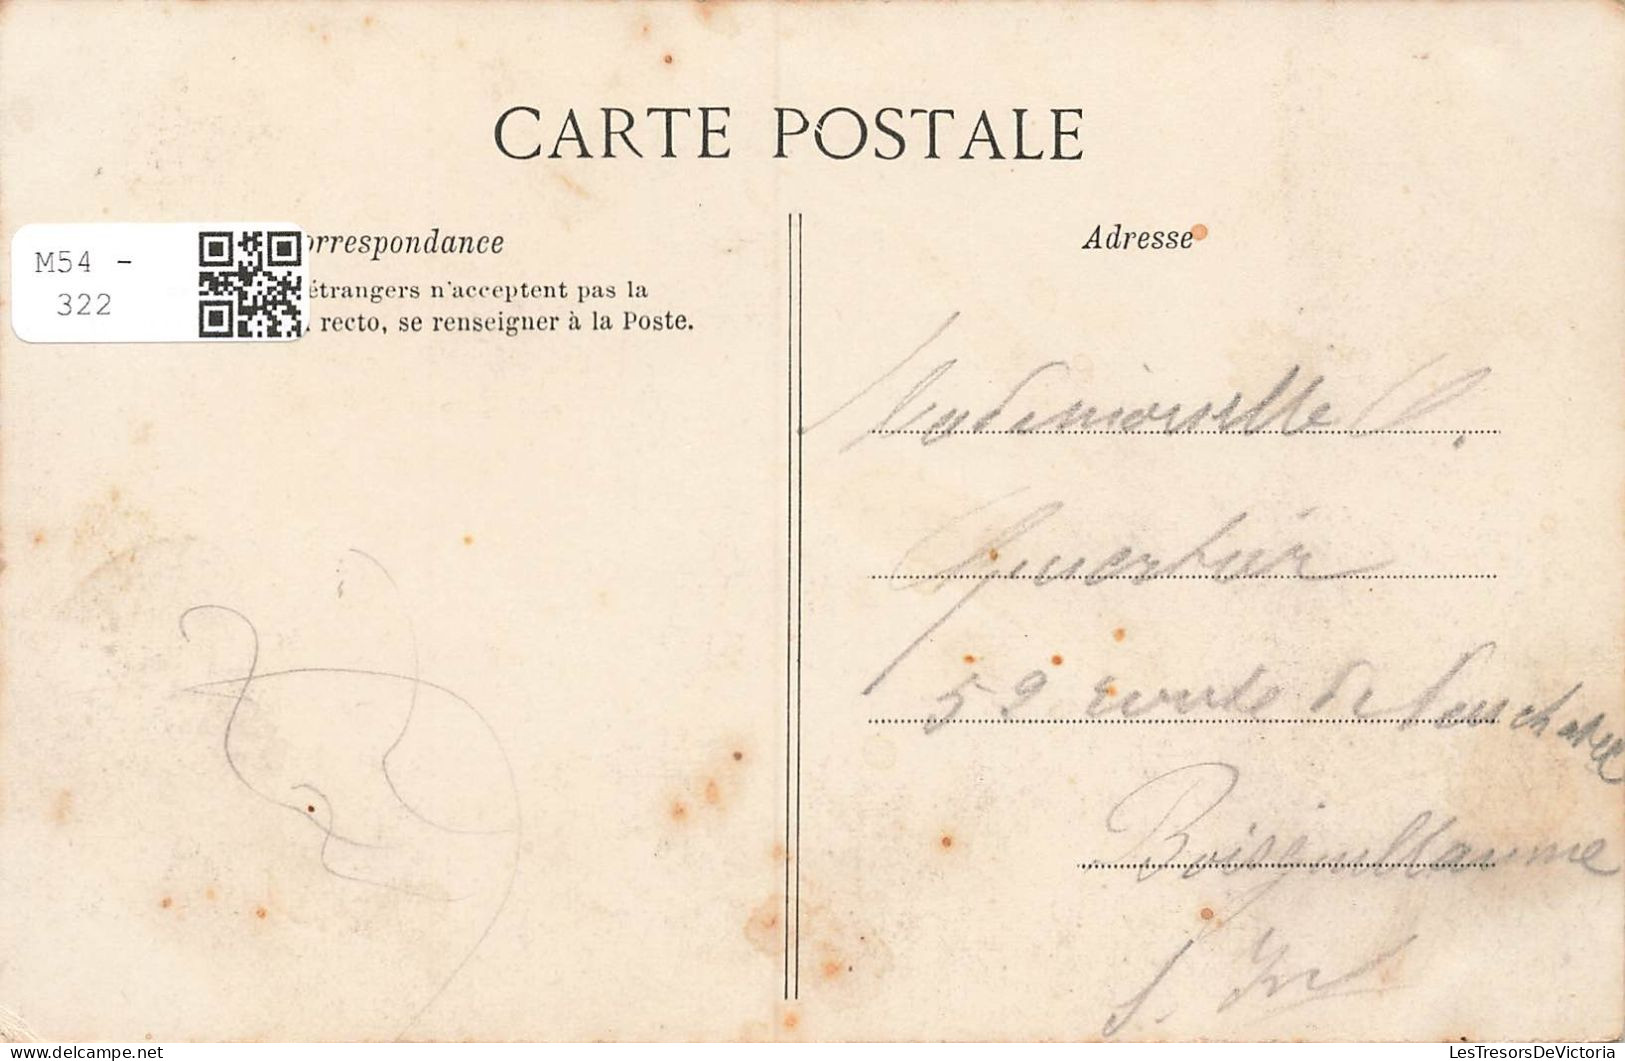 CARTE POSTALE
orrespondance
étrangers n'acceptent pas la
recto, se renseigner à la Poste.
M54 -
322
Adresse
Mademoiselle
59 route de Neuchatel
Boisguillaume
S. Inf
delcampe.net
LesTresorsDeVictoria